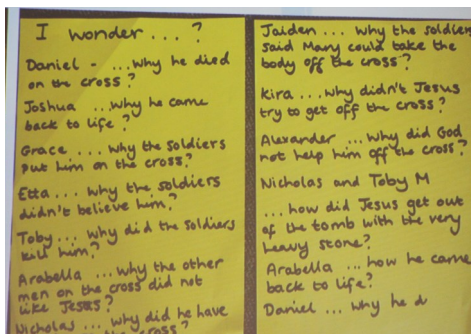 I wonder...?
Daniel - ...why he died
on the cross?
Joshua ...why he came
back to life?
Grace ... why the soldiers
put him on the cross?
Etta... why the soldiers
didn't believe him?
Toby... why did the soldiers
kill him?
Arabella ... why the other
men on the cross did not
like Jesus?
Nicholas ... why did he have
cross?
Jaiden ... why the soldier
said Mary could take the
body off the cross?
Kira ...why didn't Jesus
try to get off the cross?
Alexander ... why did God
not help him off the cross?
Nicholas and Toby M
... how did Jesus get out
of the tomb with the very
heavy stone?
Arabella ... how he came
back to life?
Daniel ... why he d